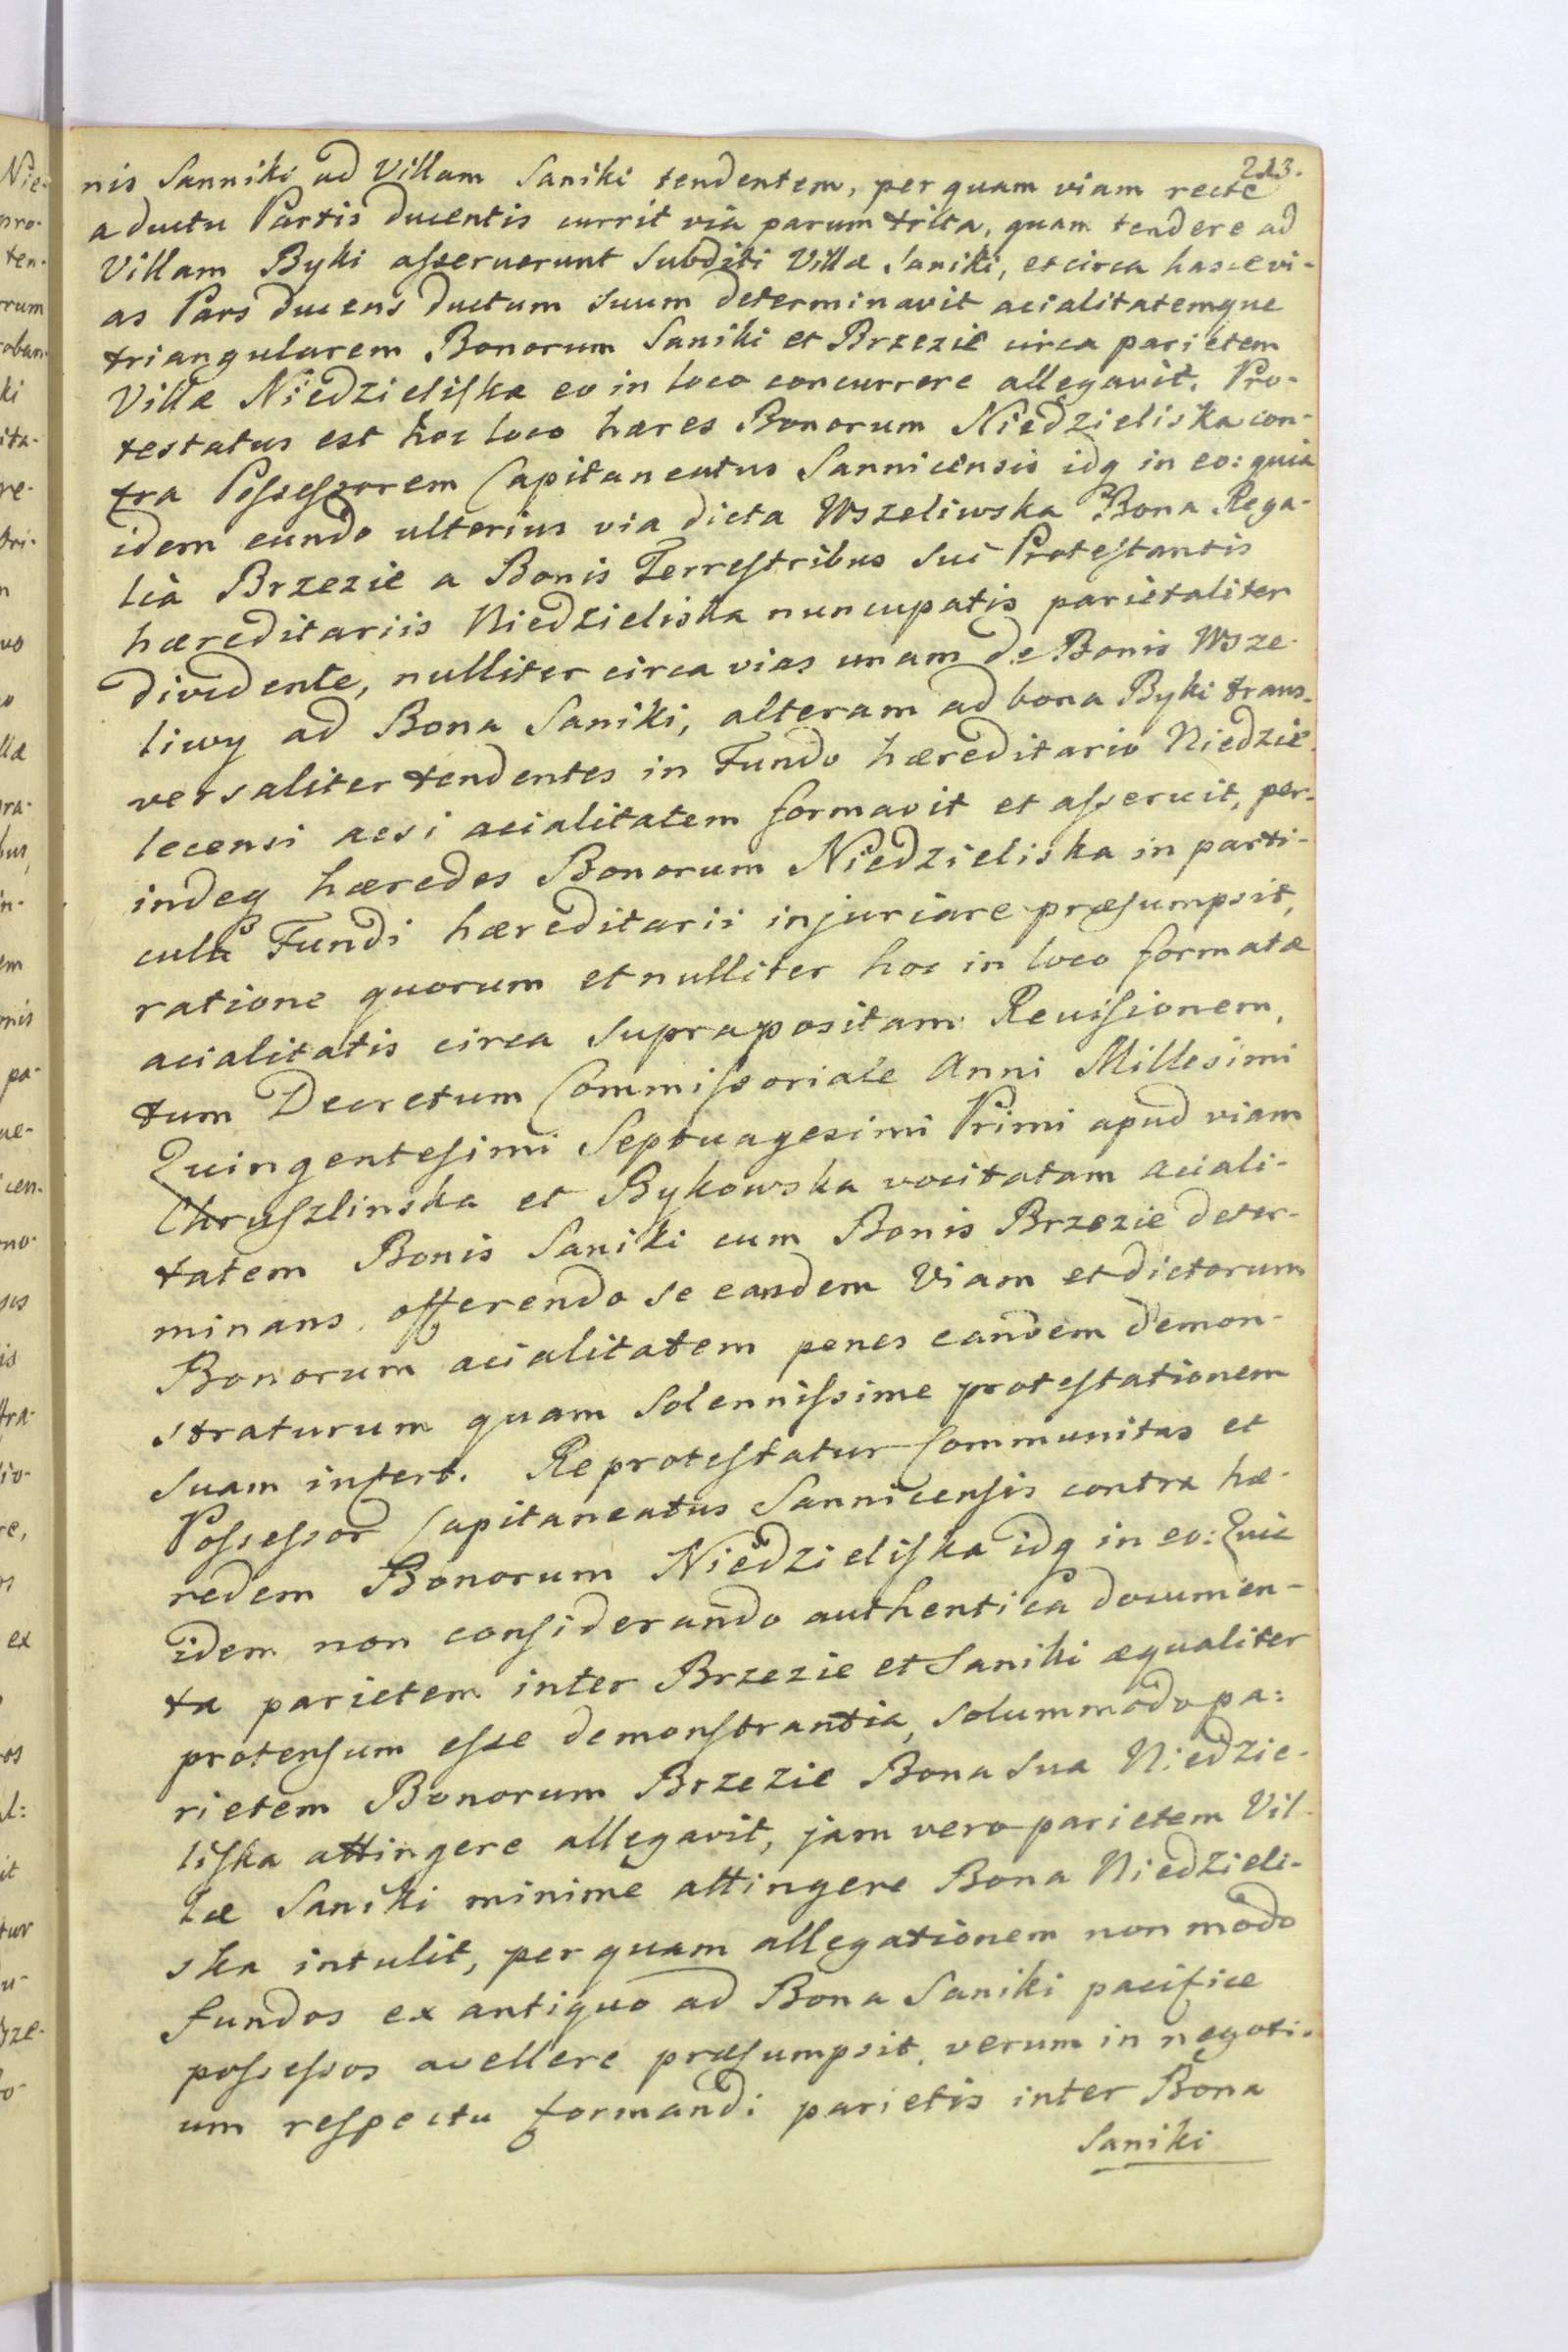 213.
nis Sanniki ad Villam Saniki tendentem, per quam viam recte
a ductu Partis ducentis currit via parum trita, quam tendere ad
Villam Byki aſseruerunt Subditi Villæ Saniki, et circa hasce vi-
as Pars ducens ductum suum determinavit acialitatemque
triangularem Bonorum Saniki et Brzezie circa parietem
Villæ Niedzieliſka eo in loco concurrere allegavit. Pro-
testatus est hoc loco hæres Bonorum Niedzieliska con-
tra Poſseſsorem Capitaneatus Sannicensis idq in eo: quia
idem eundo ulterius via dicta Wszeliwska Bona Rega-
lia Brzezie a Bonis Terreſtribus sui Proteſtantis
hæreditariis Niedzieliska nuncupatis parietaliter
dividente, nulliter circa vias unam de Bonis Wsze-
liwy ad Bona Saniki, alteram ad bona Byki trans-
versaliter tendentes in Fundo hæreditario Niedzie-
lecensi acsi acialitatem formavit et aſseruit, per-
indeq hæredes Bonorum Niedzieliska in parti-
cula Fundi hæreditarii injuriare præſumpsit,
ratione quorum et nulliter hoc in loco formatæ
acialitatis circa suprapositam Reviſionem,
tum Decretum Commiſsoriale Anni Milleſimi
Quingenteſimi Septuagesimi Primi apud viam
Chruſzlinska et Bykowska vocitatam aciali-
tatem Bonis Saniki cum Bonis Brzezie deter-
minans, offerendo se eandem Viam et dictorum
Bonorum acialitatem penes eandem demon-
straturum quam Solenniſsime proteſtationem
suam inſert. Reproteſtatur Communitas et
Poſseſsor Capitaneatus Sannicenſis contra hæ-
redem Bonorum Niedzieliſka idq in eo: Quia
idem non conſiderando authentica documen-
ta parietem inter Brzezie et Saniki æqualiter
protenſum eſse demonſtrantia, solummodo pa:
rietem Bonorum Brzezie Bona sua Niedzie-
liſka attingere allegavit, jam vero parietem Vil-
læ Saniki minime attingere Bona Niedzieli-
ska intulit, per quam allegationem non modo
fundos ex antiquo ad Bona Saniki pacifice
poſseſsos avellere præſumpsit, verum in negoti-
um reſpectu formandi parietis inter Bona
Saniki